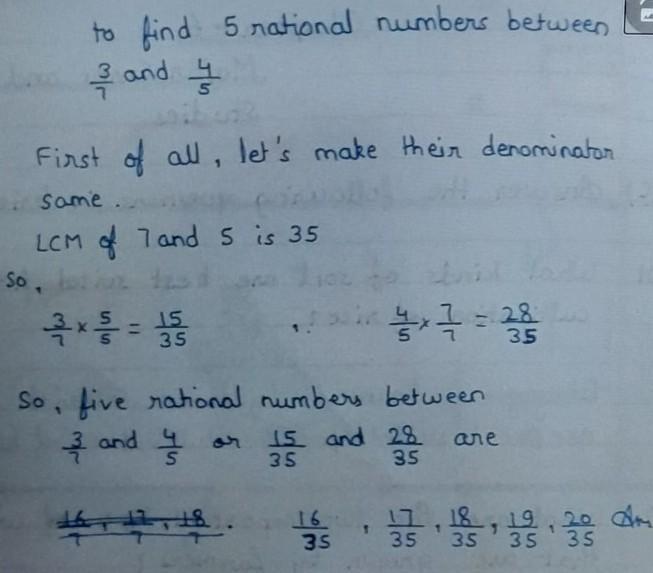 to find 5 rational numbers between
3/7 and 4/5
First of all, let's make their denominator
same.
LCM of 7 and 5 is 35
So,
3/7 × 5/5 = 15/35 , 4/5 × 7/7 = 28/35
So, five rational numbers between
3/7 and 4/5 or 15/35 and 28/35 are
16/7, 17/7, 18/7. 16/35, 17/35, 18/35, 19/35, 20/35 Ans